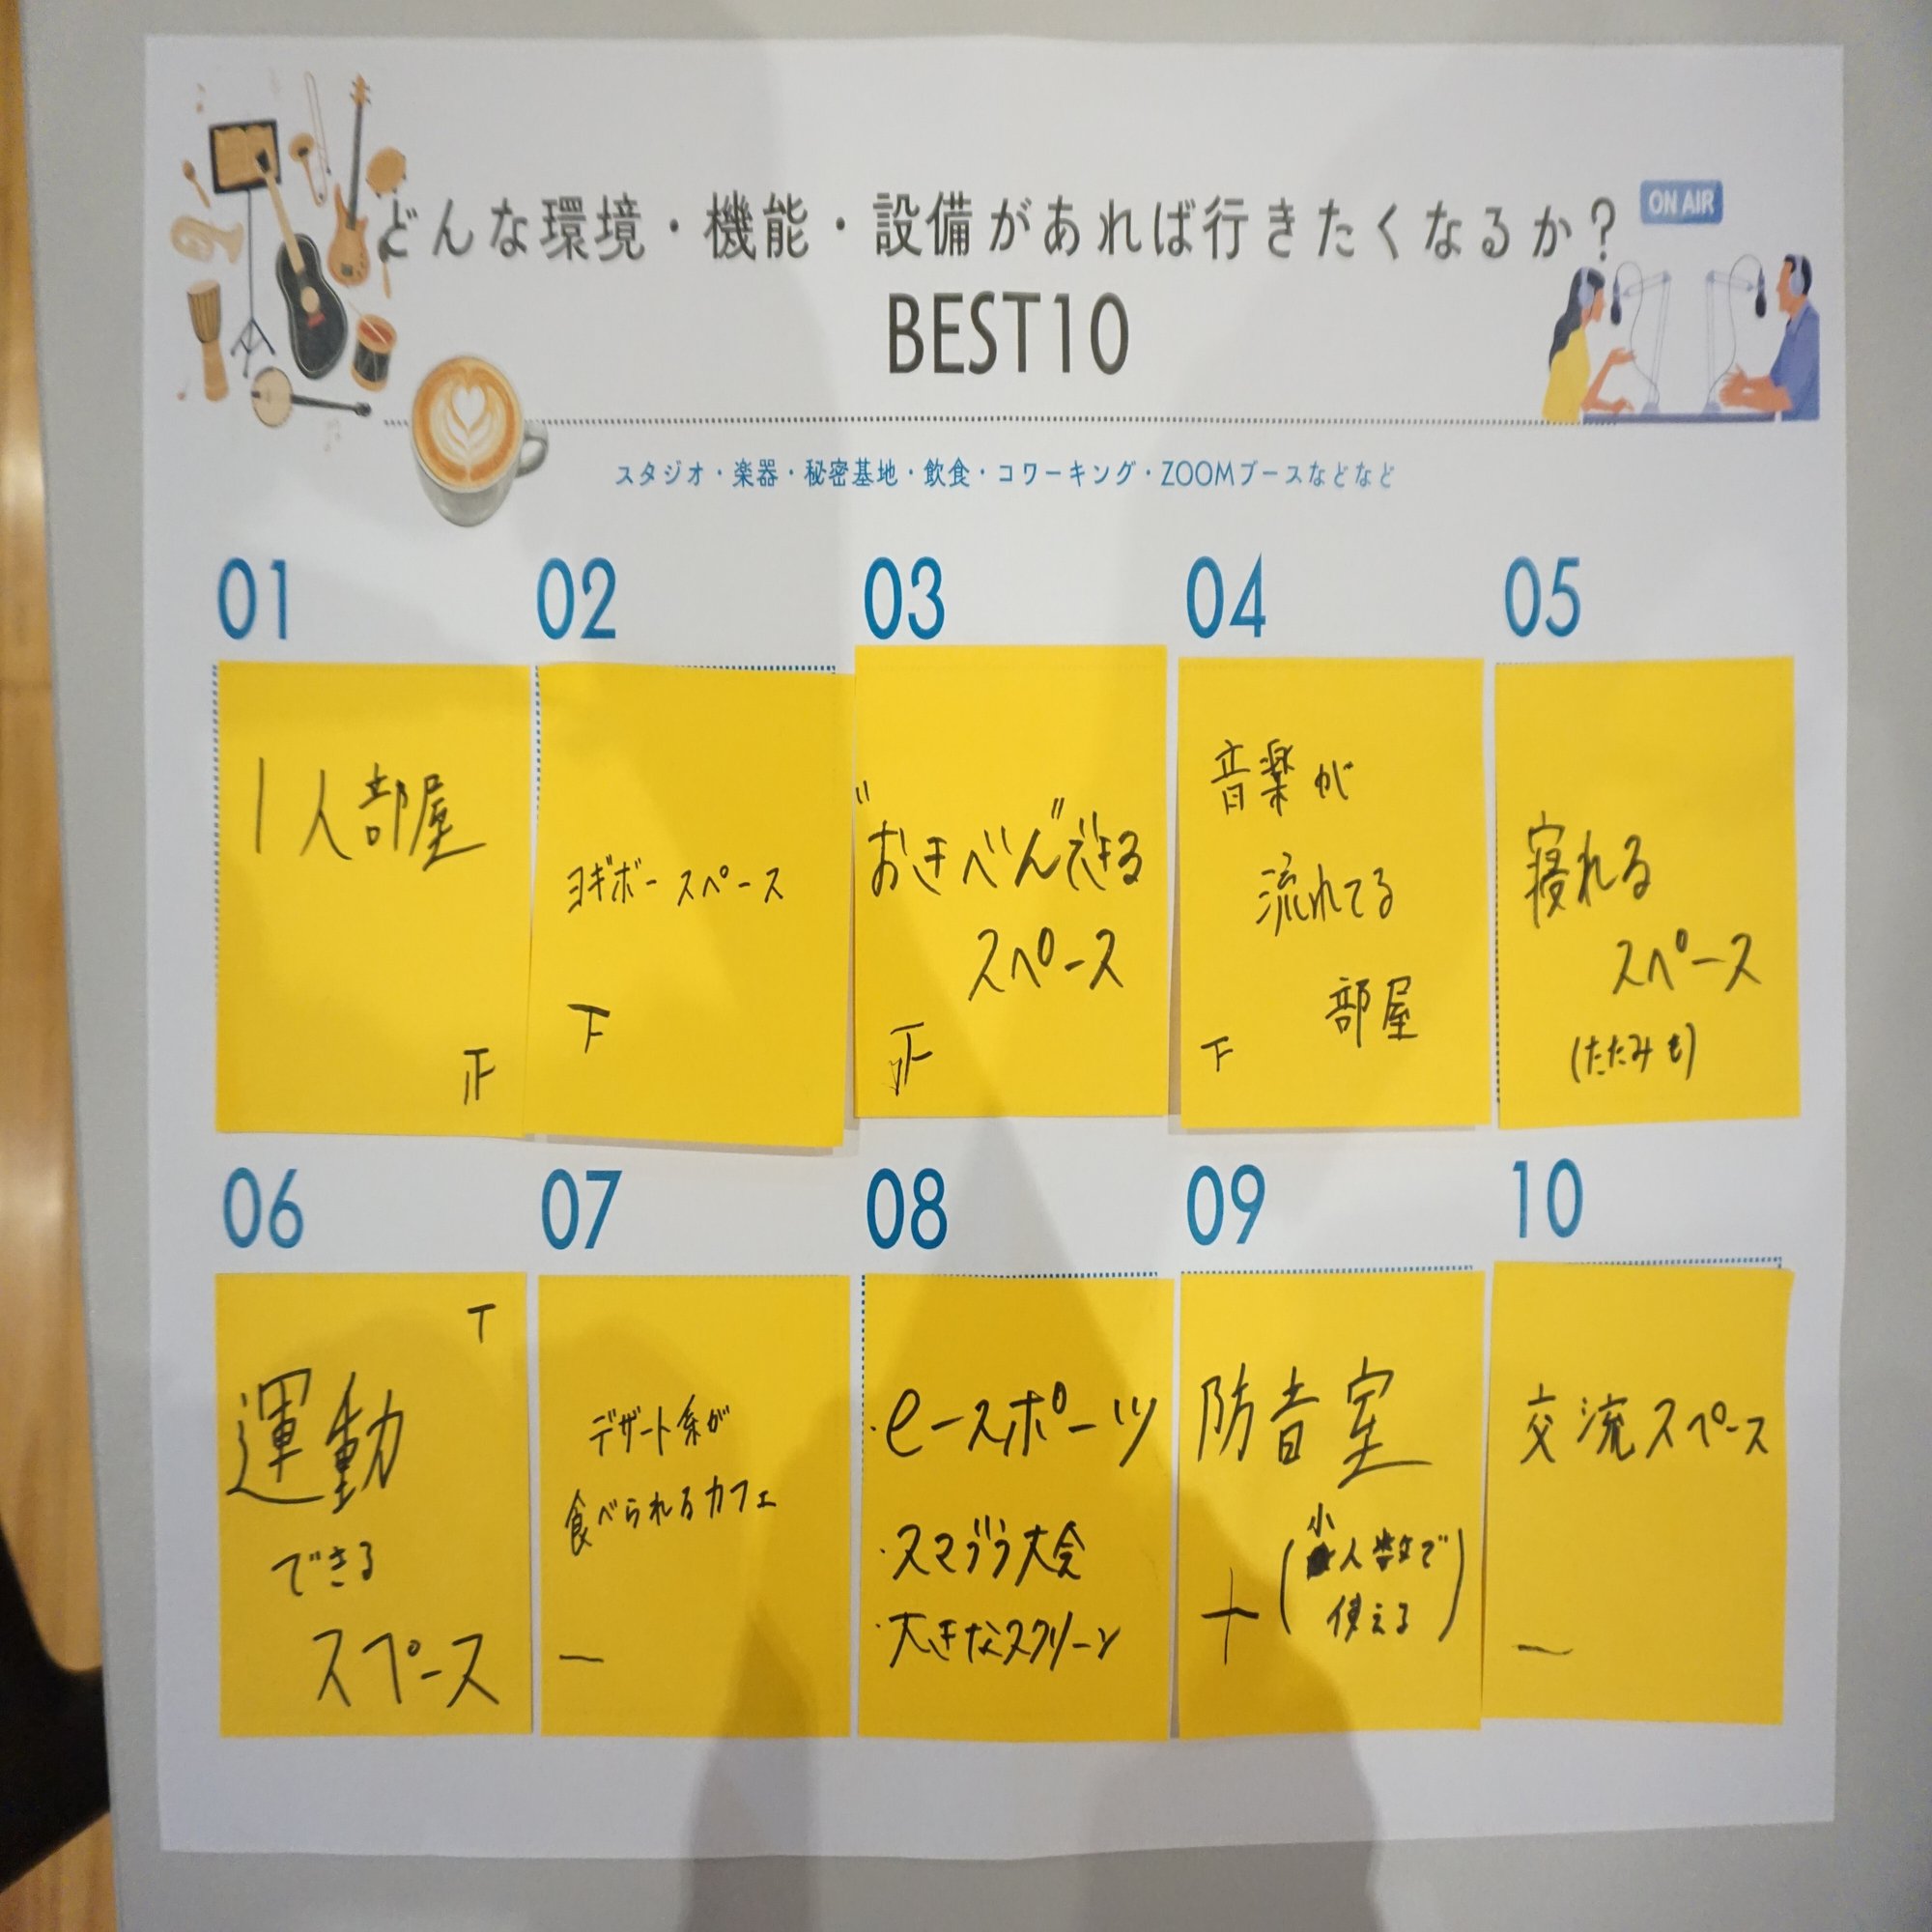 どんな環境・機能・設備があれば行きたくなるか?
ON AIR
BEST10
スタジオ・楽器・秘密基地・飲食・コワーキング・ZOOMブースなどなど
01
1人部屋
正
02
ヨギボー スペース
下
03
"おきべん"できる
スペース
正
04
音楽が
流れてる
部屋
下
05
寝れる
スペース
(たたみも)
06
T
運動
できる
スペース
07
デザート系が
食べられるカフェ
一
08
・eースポーツ
・スマブラ大会
・大きなスクリーン
09
防音室
(小人数で
使える)
10
交流スペース
一